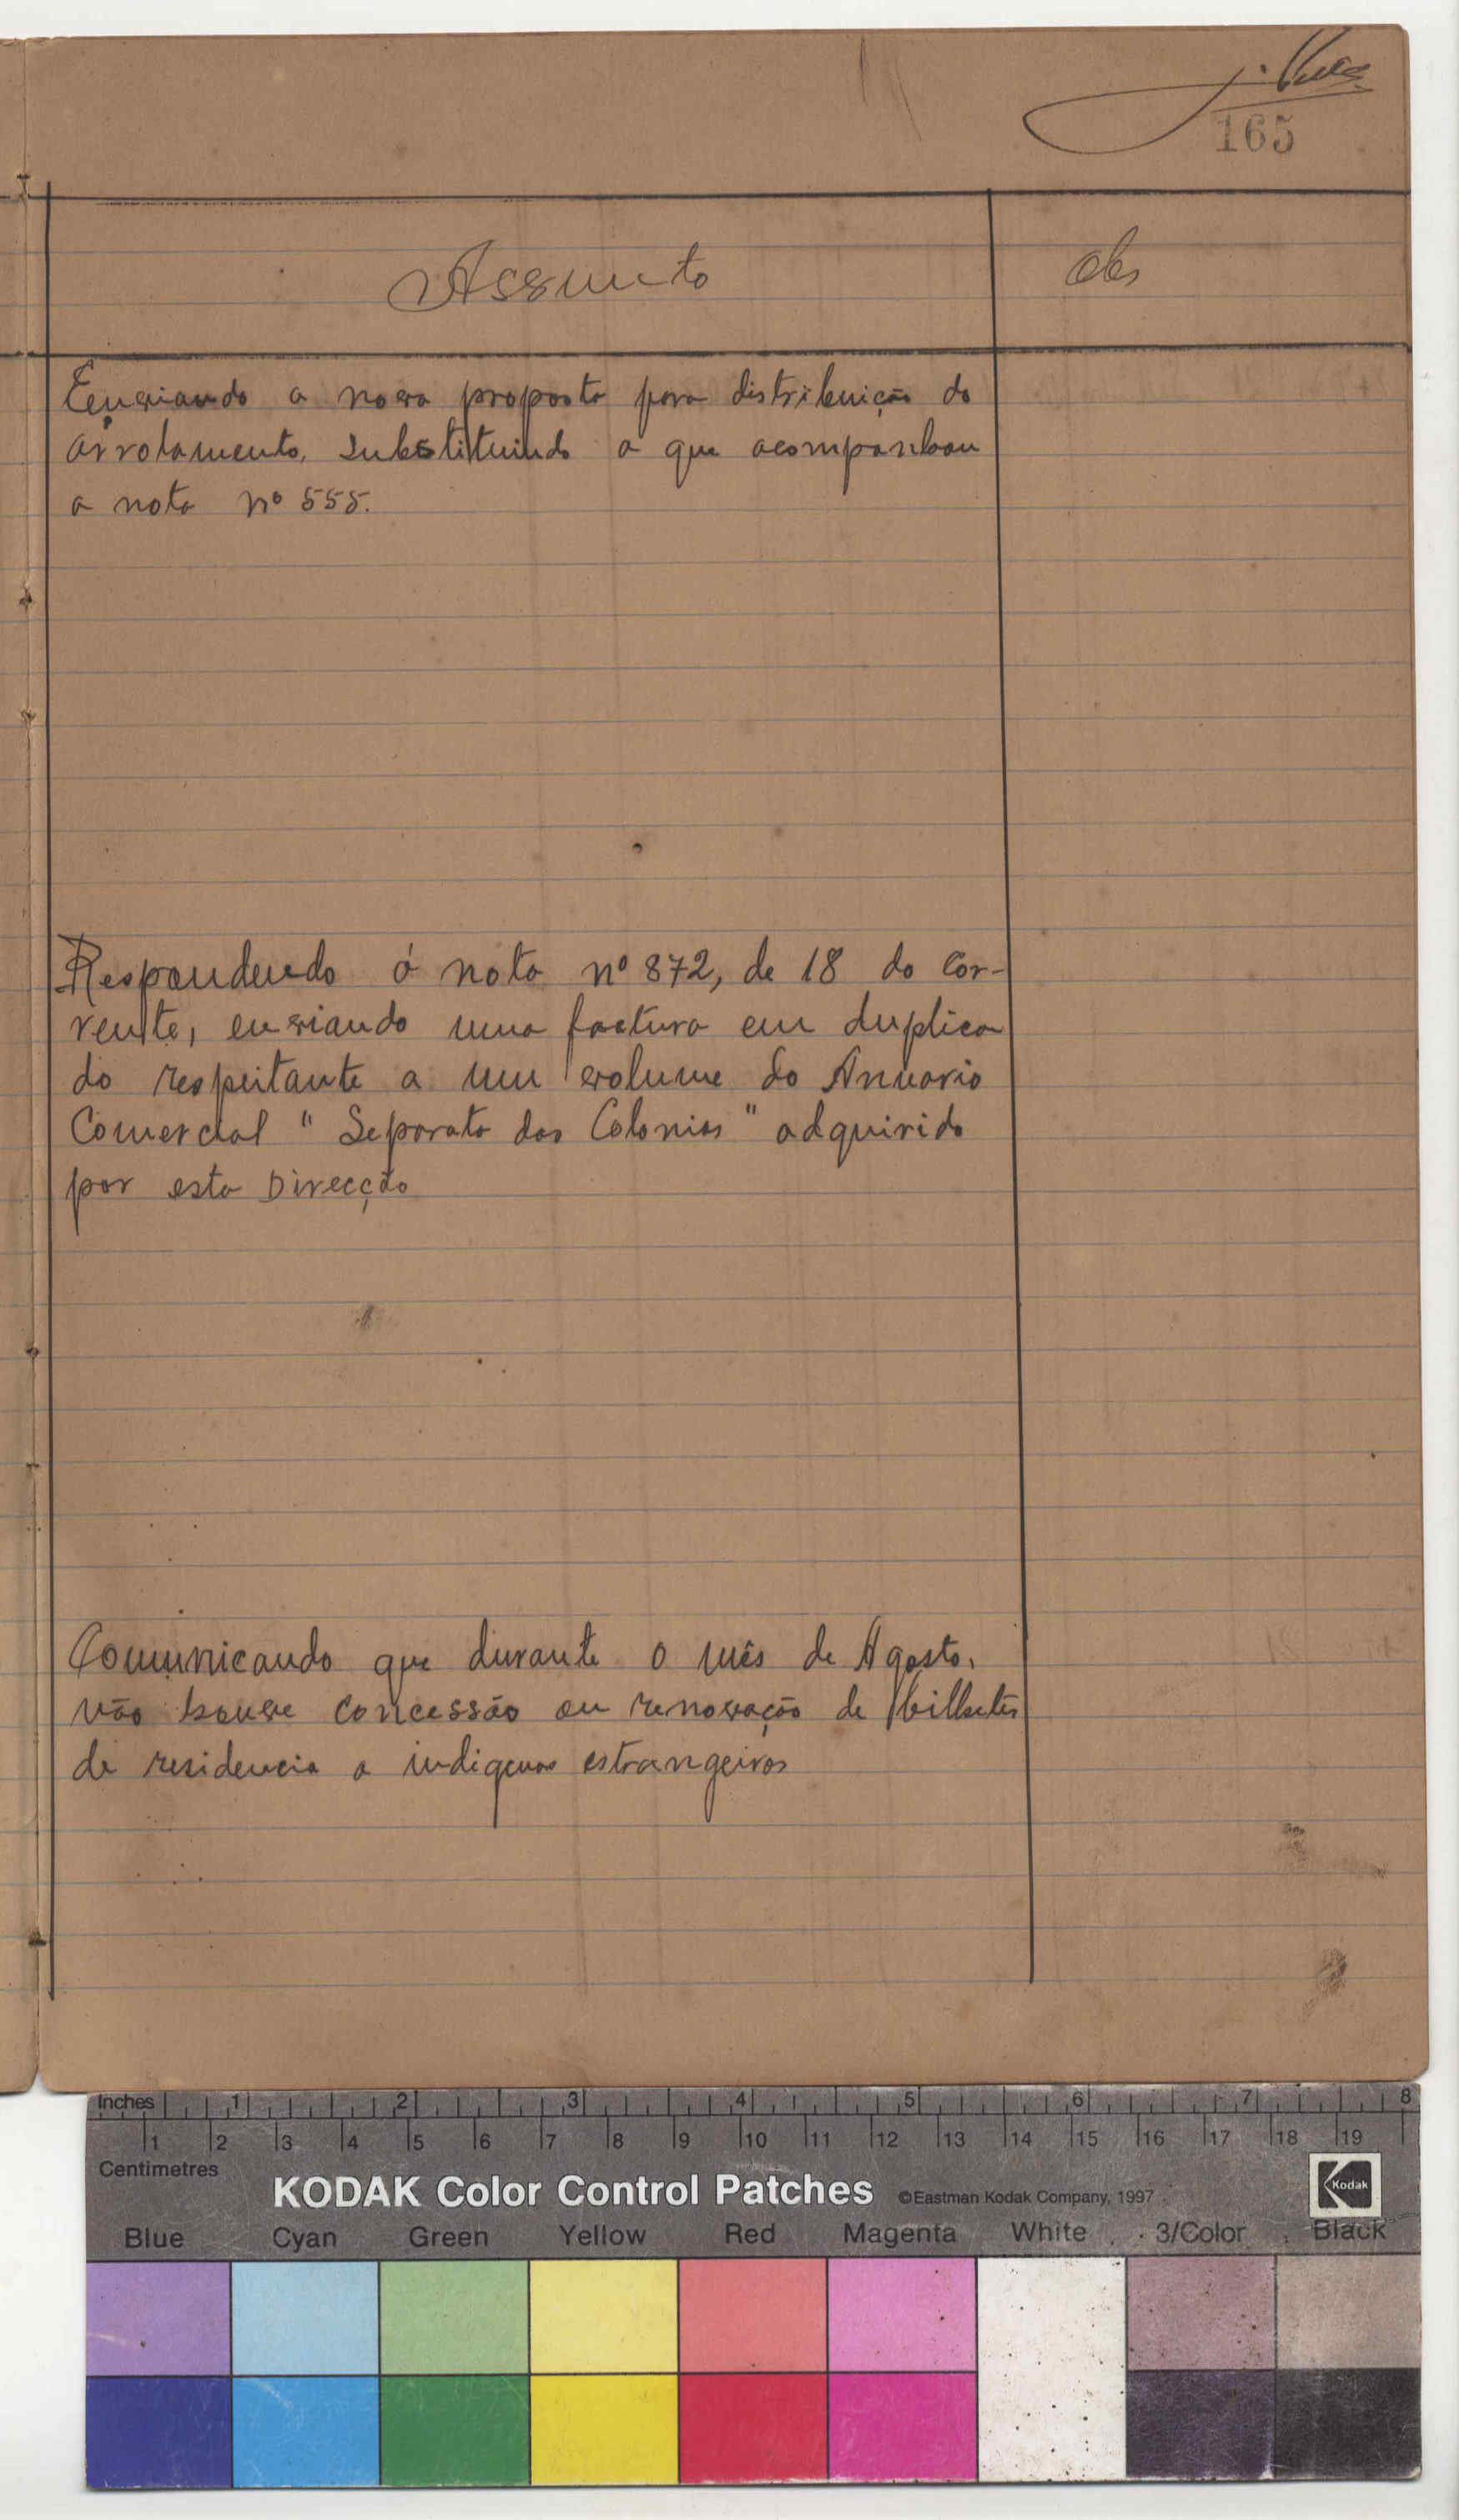 165
Assunto
obs
Enviando a nova proposta para distribuição do
arrolamento, substituindo a que acompanhou
a nota nº 555.
Respondendo á nota nº 872, de 18 do cor-
rente, enviando uma factura em duplica
do respeitante a um volume do Anuario
Comercial " Separata das Colonias " adquirido
por esta Direcção
Comunicando que durante o mês de Agosto,
não houve concessão ou renovação de bilhetes
de residencia a indigenas estrangeiros
Inches 1 2 3 4 5 6 7 8
1 2 3 4 5 6 7 8 9 10 11 12 13 14 15 16 17 18 19
Centimetres
KODAK Color Control Patches ©Eastman Kodak Company, 1997 Kodak
Blue Cyan Green Yellow Red Magenta White 3/Color Black